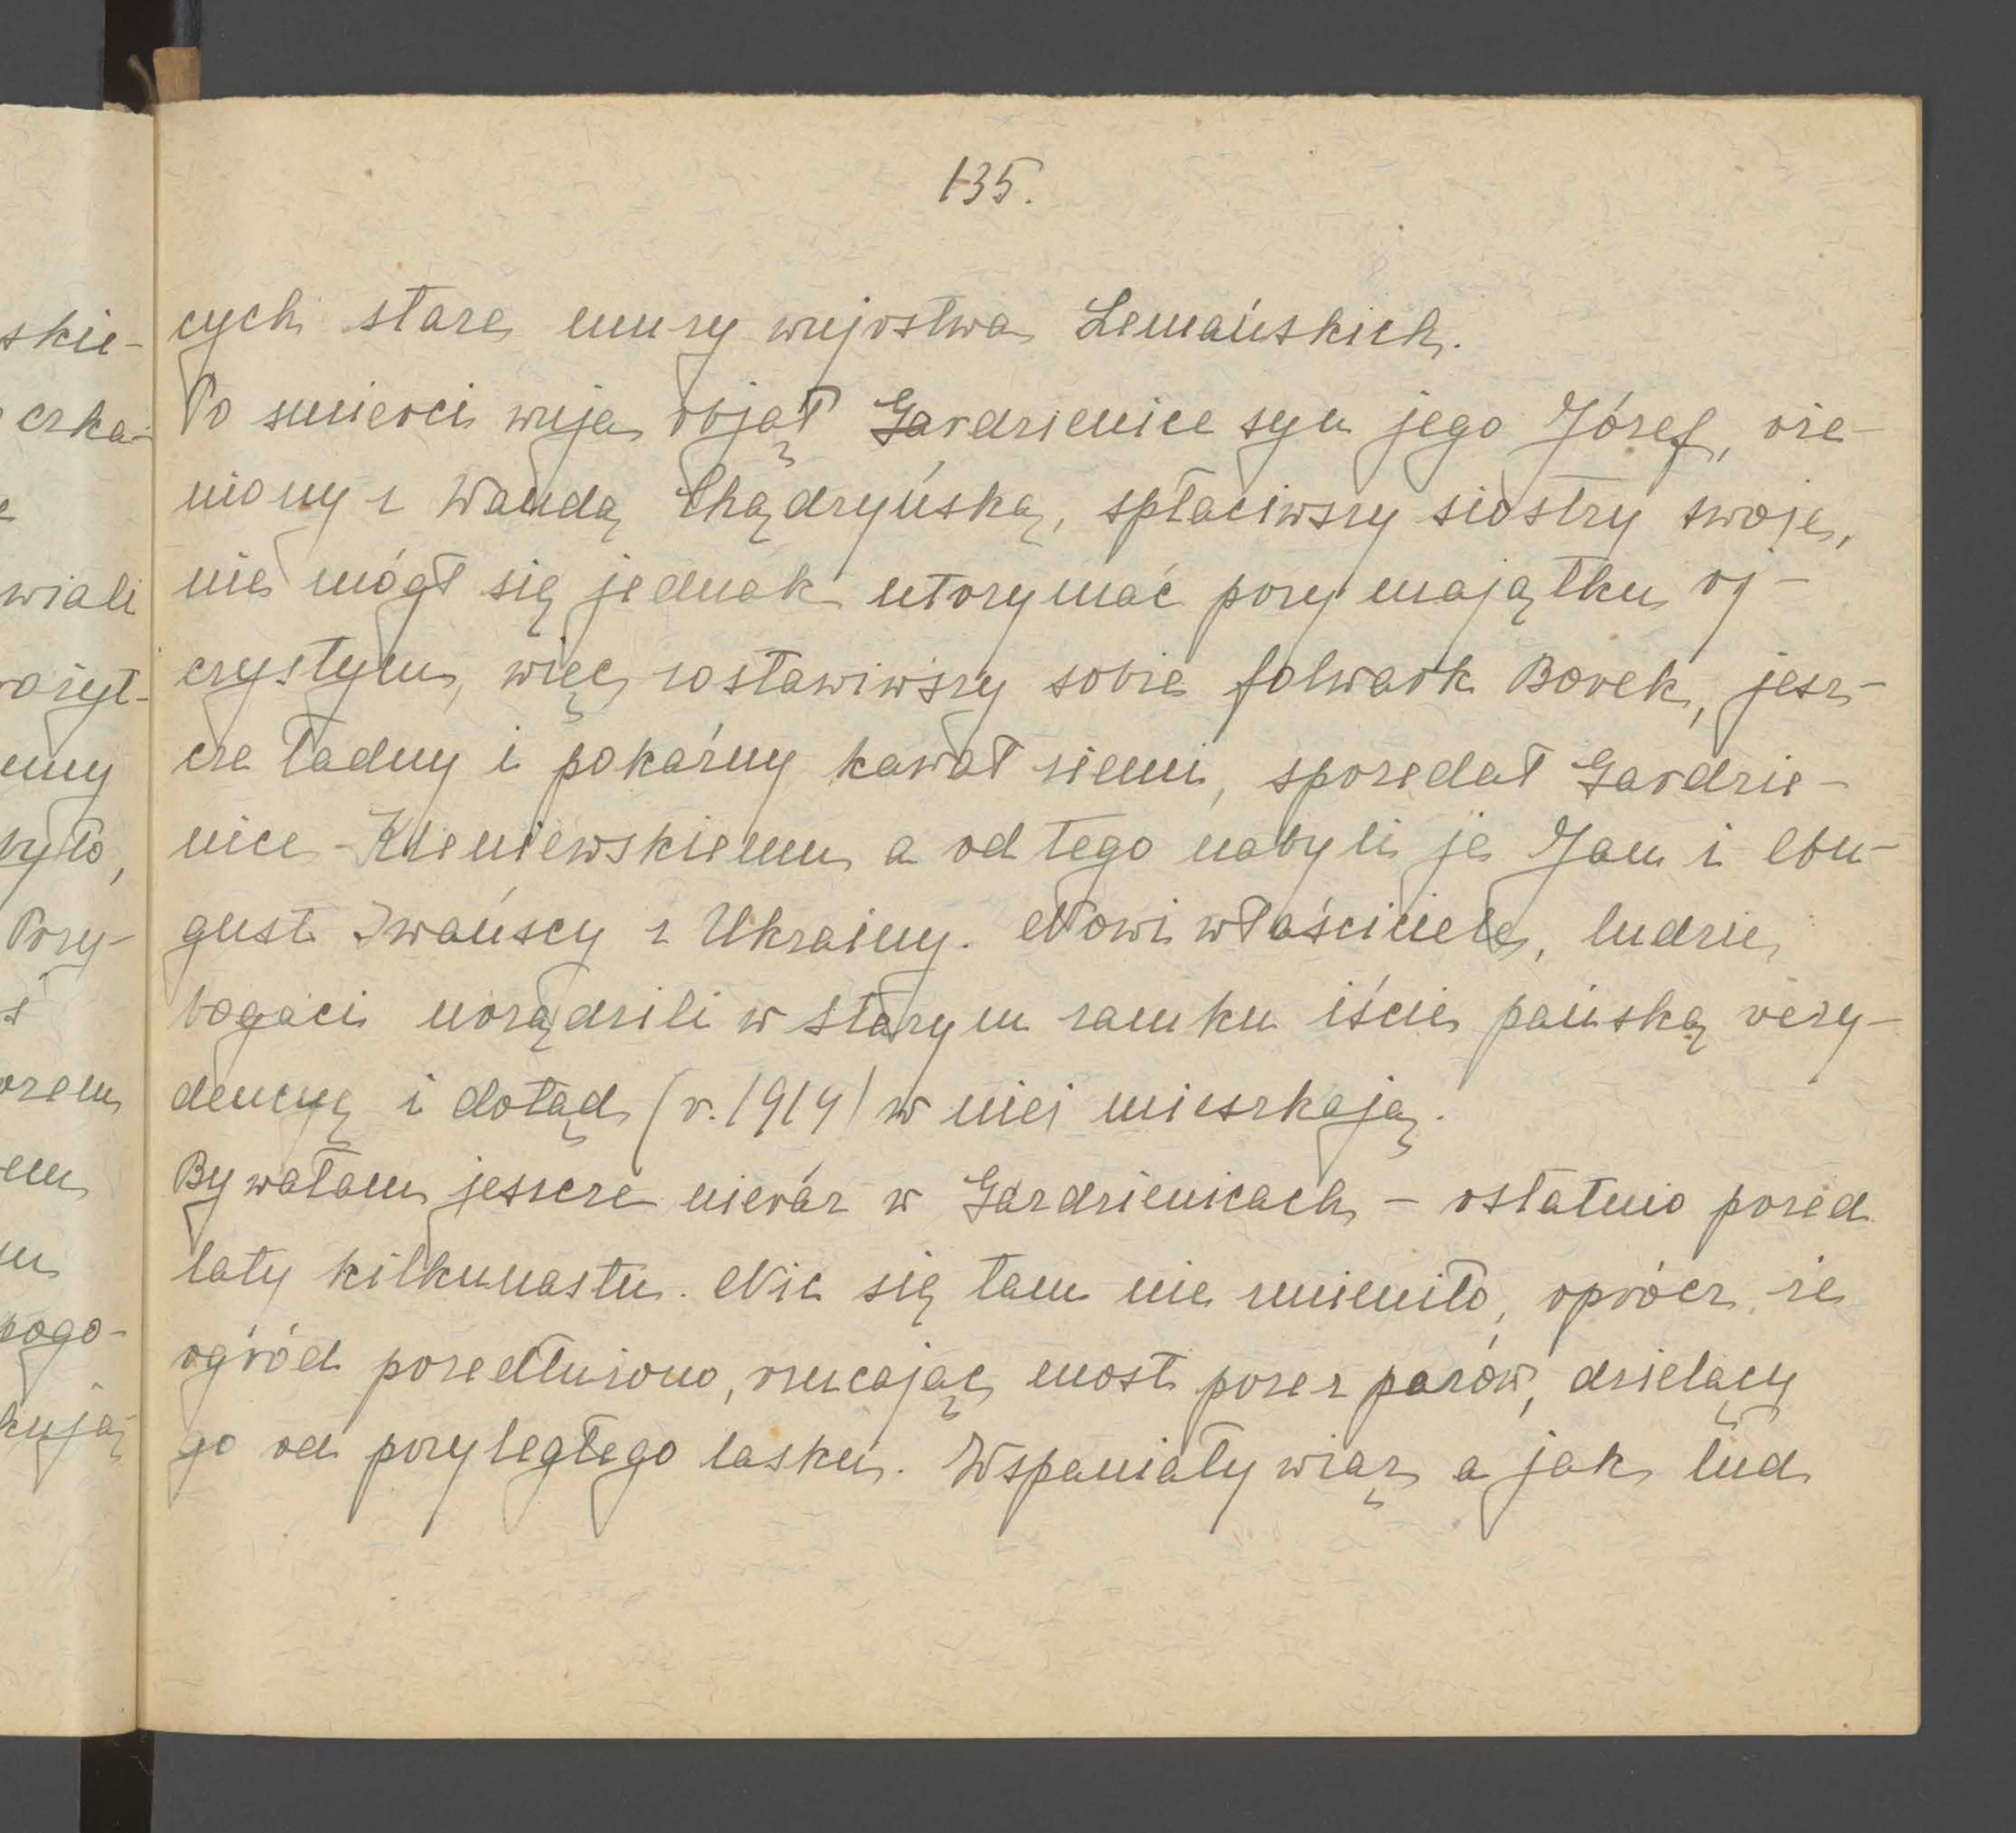 135.
skie-
cych stare mury wujostwa Lemańskich.
czka-
Po śmierci wuja objął Gardzienice syn jego Józef, oże-
niony z Wandą Chądzyńską, spłaciwszy siostry swoje,
wiali
nie mógł się jednak utrzymać przy majątku oj-
czystym, więc zostawiwszy sobie folwark Borek, jesz-
emy
cze ładny i pokaźny kawał ziemi, sprzedał Gardzie-
było,
nice Kleniewskiemu a od tego nabyli je Jan i Au-
Przy-
gust Iwańscy z Ukrainy. Nowi właściciele, ludzie
bogaci urządzili w starym zamku iście pańską rezy-
dencyę i dotąd (r. 1914) w niej mieszkają.
em
Bywałam jeszcze nieraz w Gardzienicach – ostatnio przed
laty kilkunastu. Nic się tam nie zmieniło, oprócz że
pogo-
ogród przedłużono, rzucając most przez parów, dzielący
kują
go od przyległego lasku. Wspaniały wiąz a jak lud